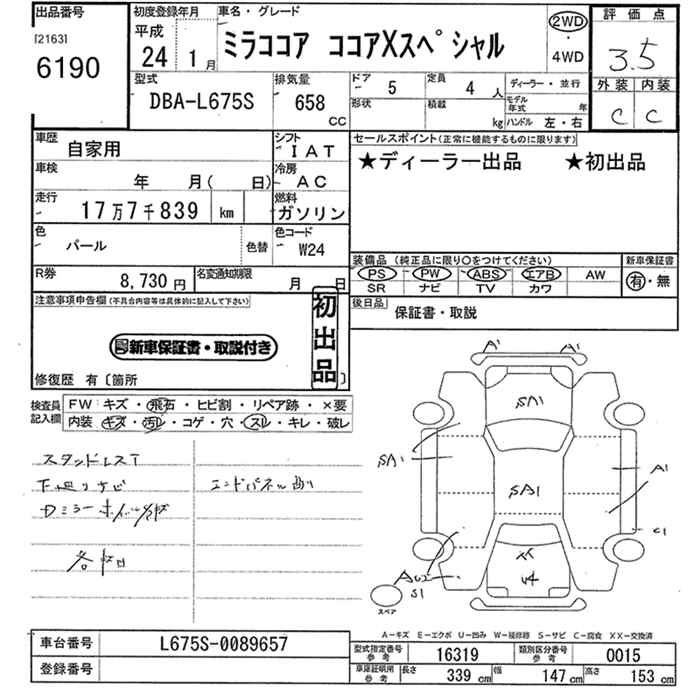 出品番号
[2163]
6190
初度登録年月
平成
24 1月
車名・グレード
ミラココア ココアXスペシャル
2WD
・
4WD
評価点
3.5
外装 内装
C C
型式
DBA-L675S
排気量
658
CC
ドア 5
定員 4 人
形状
積載 kg
ディーラー・並行
モデル年式 年
ハンドル 左・右
車歴 自家用
シフト IAT
車検 年 月( 日)
冷房 AC
走行 17万7千839 km
燃料 ガソリン
色 パール
色替
色コード W24
R券 8,730円
名変通知期限 月 日
セールスポイント(正常に機能するものに限ります)
★ディーラー出品 ★初出品
装備品(純正品に限り○をつけてください)
PS PW ABS エアB AW
SR ナビ TV カワ
新車保証書
有・無
後日品 保証書・取説
注意事項申告欄(不具合内容等は具体的に記入して下さい)
新車保証書・取説付き
初出品
修復歴 有〔箇所 〕
検査員記入欄
FW キズ・飛石・ヒビ割・リペア跡・×要
内装 キズ・汚レ・コゲ・穴・スレ・キレ・破レ
エンドパネル凹
A1 A1
SA1
SA1
SA1
A1
C1
S1
スペア
A-キズ E-エクボ U-凹み W-補修跡 S-サビ C-腐食 XX-交換済
車台番号 L675S-0089657
登録番号
型式指定番号参考 16319
類別区分番号参考 0015
車庫証明用参考 長さ 339cm 幅 147cm 高さ 153cm